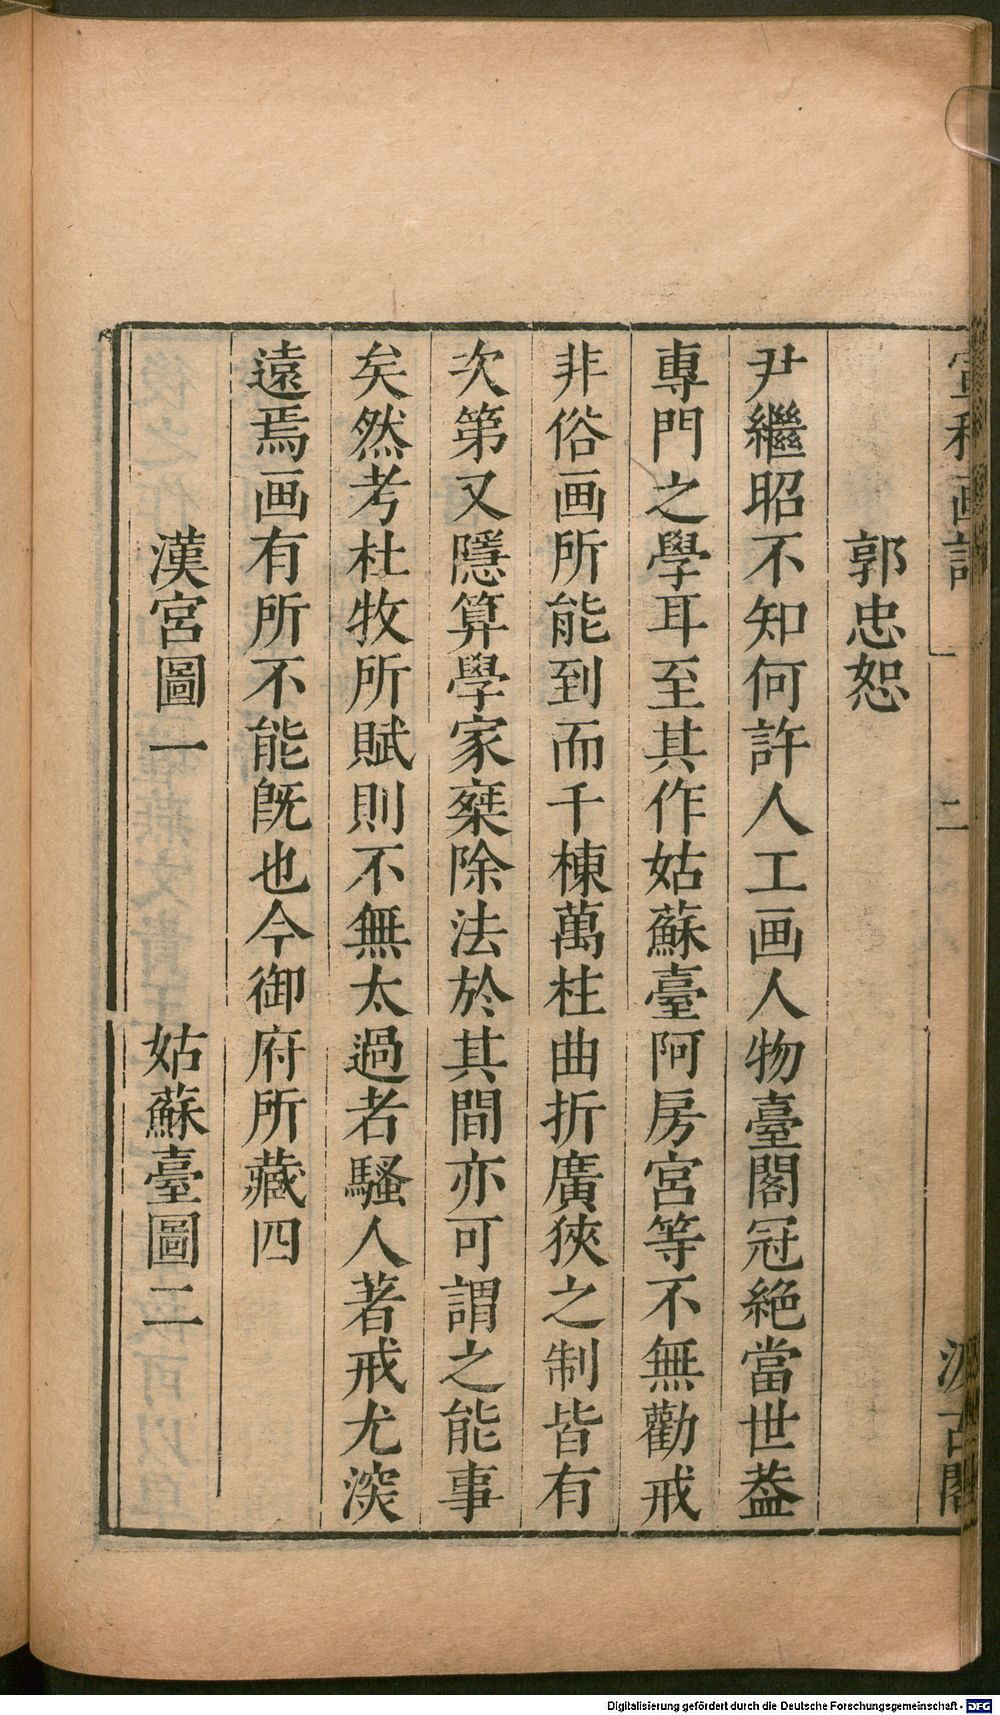 宣和画譜 二 汲古閣
郭忠恕
尹繼昭不知何許人工画人物臺閣冠絶當世葢
專門之學耳至其作姑蘇臺阿房宮等不無勸戒
非俗画所能到而千棟萬柱曲折廣狹之制皆有
次第又隱算學家乘除法於其間亦可謂之能事
矣然考杜牧所賦則不無太過者騷人著戒尤深
遠焉画有所不能既也今御府所藏四
漢宮圖一 姑蘇臺圖二
Digitalisierung gefördert durch die Deutsche Forschungsgemeinschaft - DFG